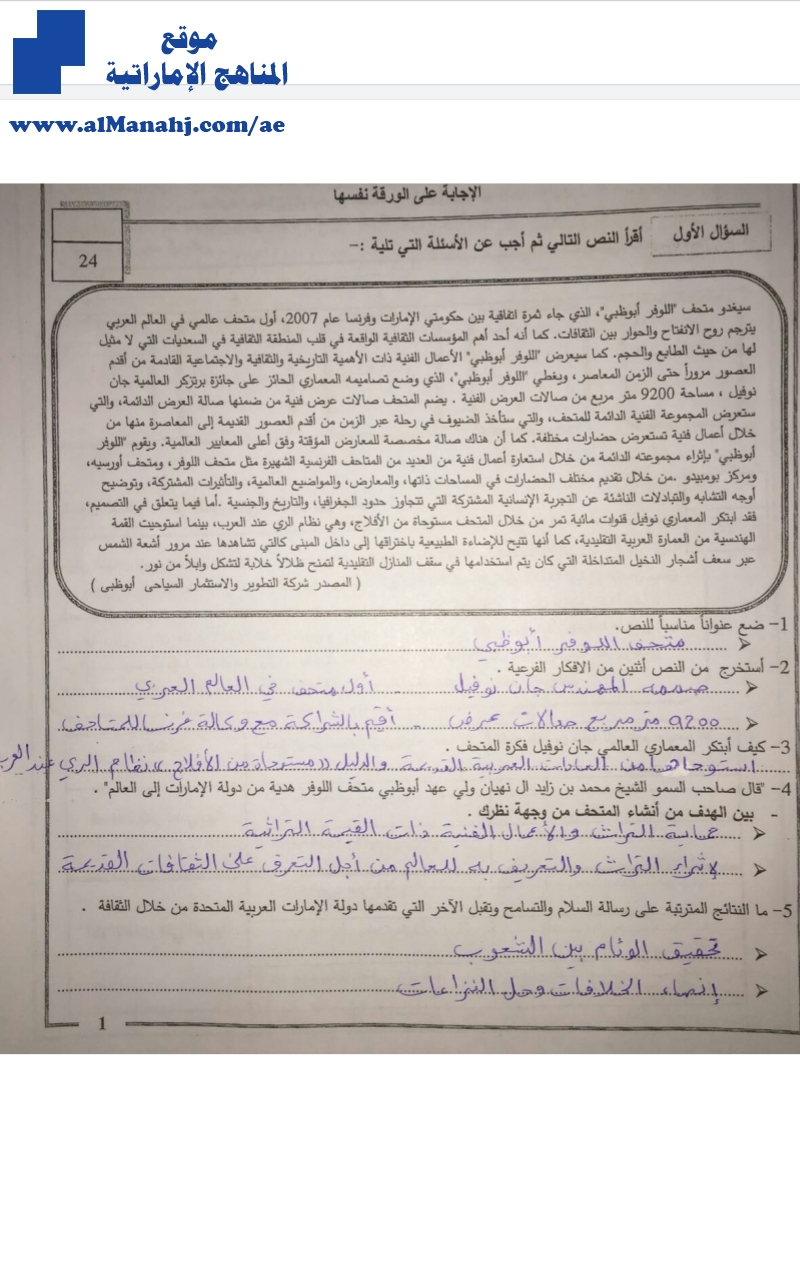 موقع
المناهج الإماراتية
www.alManahj.com/ae
الإجابة على الورقة نفسها
السؤال الأول
أقرأ النص التالي ثم أجب عن الأسئلة التي تلية :-
24
سيغدو متحف "اللوفر أبوظبي"، الذي جاء ثمرة اتفاقية بين حكومتي الإمارات وفرنسا عام 2007، أول متحف عالمي في العالم العربي
يترجم روح الانفتاح والحوار بين الثقافات. كما أنه أحد أهم المؤسسات الثقافية الواقعة في قلب المنطقة الثقافية في السعديات التي لا مثيل
لها من حيث الطابع والحجم. كما سيعرض "اللوفر أبوظبي" الأعمال الفنية ذات الأهمية التاريخية والثقافية والاجتماعية القادمة من أقدم
العصور مروراً حتى الزمن المعاصر، ويغطي "اللوفر أبوظبي"، الذي وضع تصاميمه المعماري الحائز على جائزة برتزكر العالمية جان
نوفيل ، مساحة 9200 متر مربع من صالات العرض الفنية . يضم المتحف صالات عرض فنية من ضمنها صالة العرض الدائمة، والتي
ستعرض المجموعة الفنية الدائمة للمتحف، والتي ستأخذ الضيوف في رحلة عبر الزمن من أقدم العصور القديمة إلى المعاصرة منها من
خلال أعمال فنية تستعرض حضارات مختلفة. كما أن هناك صالة مخصصة للمعارض المؤقتة وفق أعلى المعايير العالمية. ويقوم "اللوفر
أبوظبي" بإثراء مجموعته الدائمة من خلال استعارة أعمال فنية من العديد من المتاحف الفرنسية الشهيرة مثل متحف اللوفر، ومتحف أورسيه،
ومركز بومبيدو .من خلال تقديم مختلف الحضارات في المساحات ذاتها، والمعارض، والمواضيع العالمية، والتأثيرات المشتركة، وتوضيح
أوجه التشابه والتبادلات الناشئة عن التجربة الإنسانية المشتركة التي تتجاوز حدود الجغرافيا، والتاريخ والجنسية .أما فيما يتعلق في التصميم،
فقد ابتكر المعماري نوفيل قنوات مائية تمر من خلال المتحف مستوحاة من الأفلاج، وهي نظام الري عند العرب، بينما استوحيت القمة
الهندسية من العمارة العربية التقليدية، كما أنها تتيح للإضاءة الطبيعية باختراقها إلى داخل المبنى كالتي تشاهدها عند مرور أشعة الشمس
عبر سعف أشجار النخيل المتداخلة التي كان يتم استخدامها في سقف المنازل التقليدية لتمنح ظلالاً خلابة لتشكل وابلاً من نور.
( المصدر شركة التطوير والاستثمار السياحى أبوظبى )
1- ضع عنواناً مناسباً للنص.
متحف اللوفر أبوظبي
2- أستخرج من النص أثنين من الافكار الفرعية .
صممه المهندس جان نوفيل - أول متحف في العالم العربي
9200 متر مربع صالات عرض - أقيم بالشراكة مع وكالة فرنسا للمتاحف
3- كيف أبتكر المعماري العالمي جان نوفيل فكرة المتحف .
استوحاها من العادات العربية القديمة والدليل (( مستوحاة من الأفلاج )) نظام الري عند العرب
4- "قال صاحب السمو الشيخ محمد بن زايد ال نهيان ولي عهد أبوظبي متحف اللوفر هدية من دولة الإمارات إلى العالم" .
- بين الهدف من أنشاء المتحف من وجهة نظرك .
حماية التراث والأعمال الفنية ذات القيمة التراثية
لإثراء التراث والتعريف به للعالم من أجل التعرف على الثقافات القديمة
5- ما النتائج المترتبة على رسالة السلام والتسامح وتقبل الآخر التي تقدمها دولة الإمارات العربية المتحدة من خلال الثقافة .
تحقيق الوئام بين الشعوب
إنهاء الخلافات وحل النزاعات
1